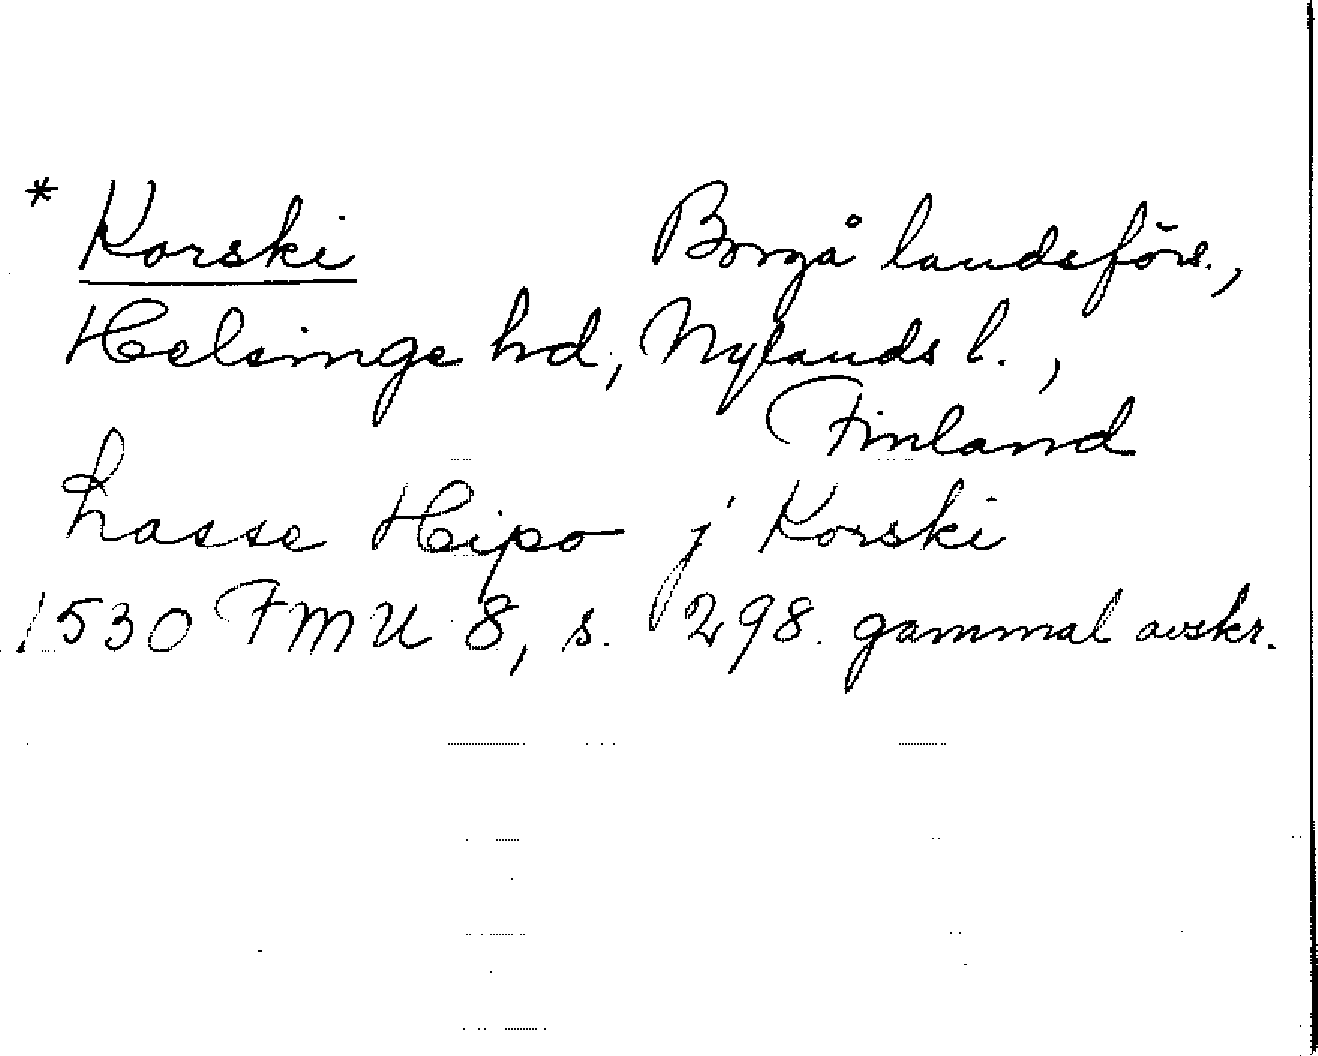 * Korski Borgå landsförs.,
Helsinge hd, Nylands l.,
Finland
Lasse Hipo j Korski
1530 FMU 8, s. 298. gammal avskr.